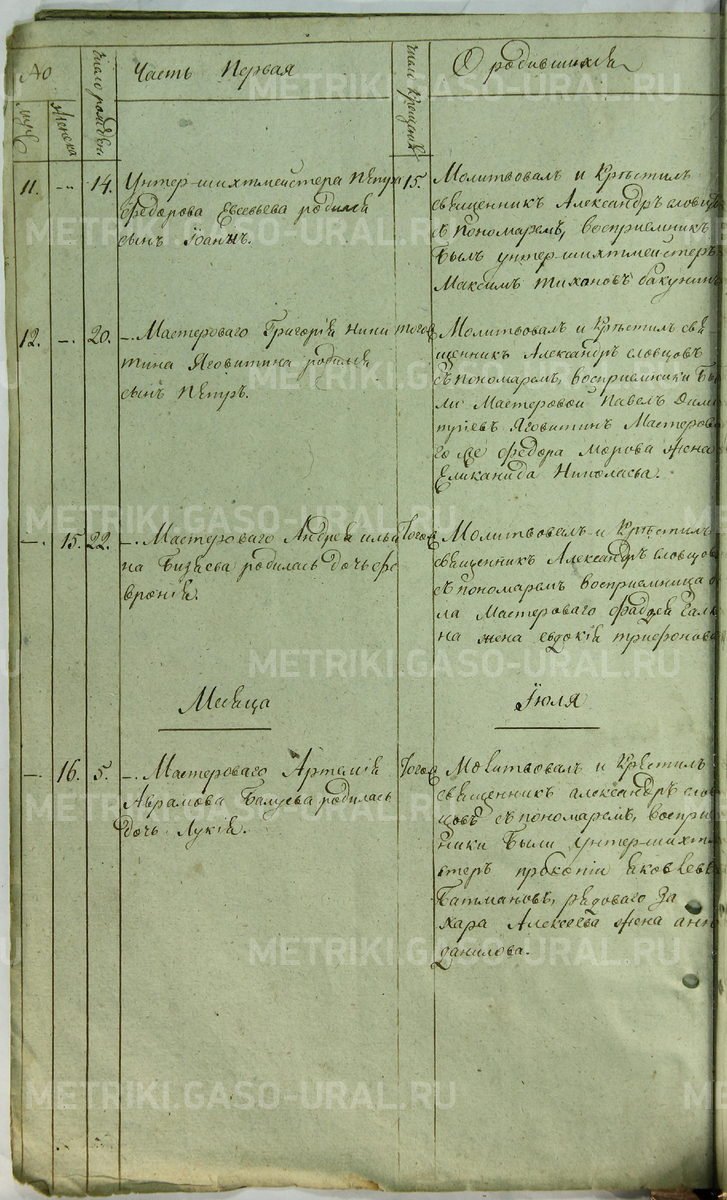 No
муж:
женска
число рожденія
Часть Первая
число крещенія
О родившихся
11. -- 14. Унтер-шихтмейстера Петра
федорова Евсевьева родился
сынъ Іоаннъ.
15. Молитвовал и крѣстилъ
священникъ Александръ словцов
съ пономаремъ, восприемникъ
был унтер-шихтмейстеръ
Максимъ тихановъ бакунинъ
12. -. 20. -. Мастероваго Григорія Ники
тина Яговитина родился
сынъ Петръ.
тогож
Молитвовал и крѣстил свя
щенникъ Александръ словцовъ
съ пономаремъ, восприемники бы
ли Мастеровой Павел Дими
тріевъ Яговитин Мастерова
го же федора Морова жена
Еликанида Николаева.
-. 15. 22. -. Мастероваго Андрея ильи
на Бизяева родилась дочь фе
вронія.
тогож
Молитвовалъ и крѣстилъ
священникъ Александръ словцов
съ пономарем восприемница бы
ла Мастероваго фаддея Галки
на жена евдокія трифонова
Месяца
Іюля
-. 16. 5. -. Мастероваго Артемія
Аврамова Балуева родилась
дочь Лукія.
тогож
Молитвовал и крѣстилъ
священникъ александръ слов
цовъ съ пономаремъ, воспри
ники были унтер-шихтм
стеръ прокопіи яковлевъ
Батмановъ, рядоваго За
хара Алексеева жена анна
данилова.
METRIKI.GASO-URAL.RU